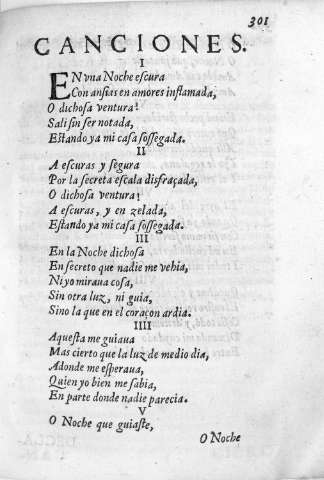 301
CANCIONES.
I
EN vna Noche escura
Con ansias en amores inflamada,
O dichosa ventura!
Sali sin ser notada,
Estando ya mi casa sossegada.
II
A escuras y segura
Por la secreta escala disfraçada,
O dichosa ventura!
A escuras, y en zelada,
Estando ya mi casa sossegada.
III
En la Noche dichosa
En secreto que nadie me vehia,
Ni yo miraua cosa,
Sin otra luz, ni guia,
Sino la que en el coraçon ardia.
IIII
Aquesta me guiaua
Mas cierto que la luz de medio dia,
Adonde me esperaua,
Quien yo bien me sabia,
En parte donde nadie parecia.
V
O Noche que guiaste,
O Noche